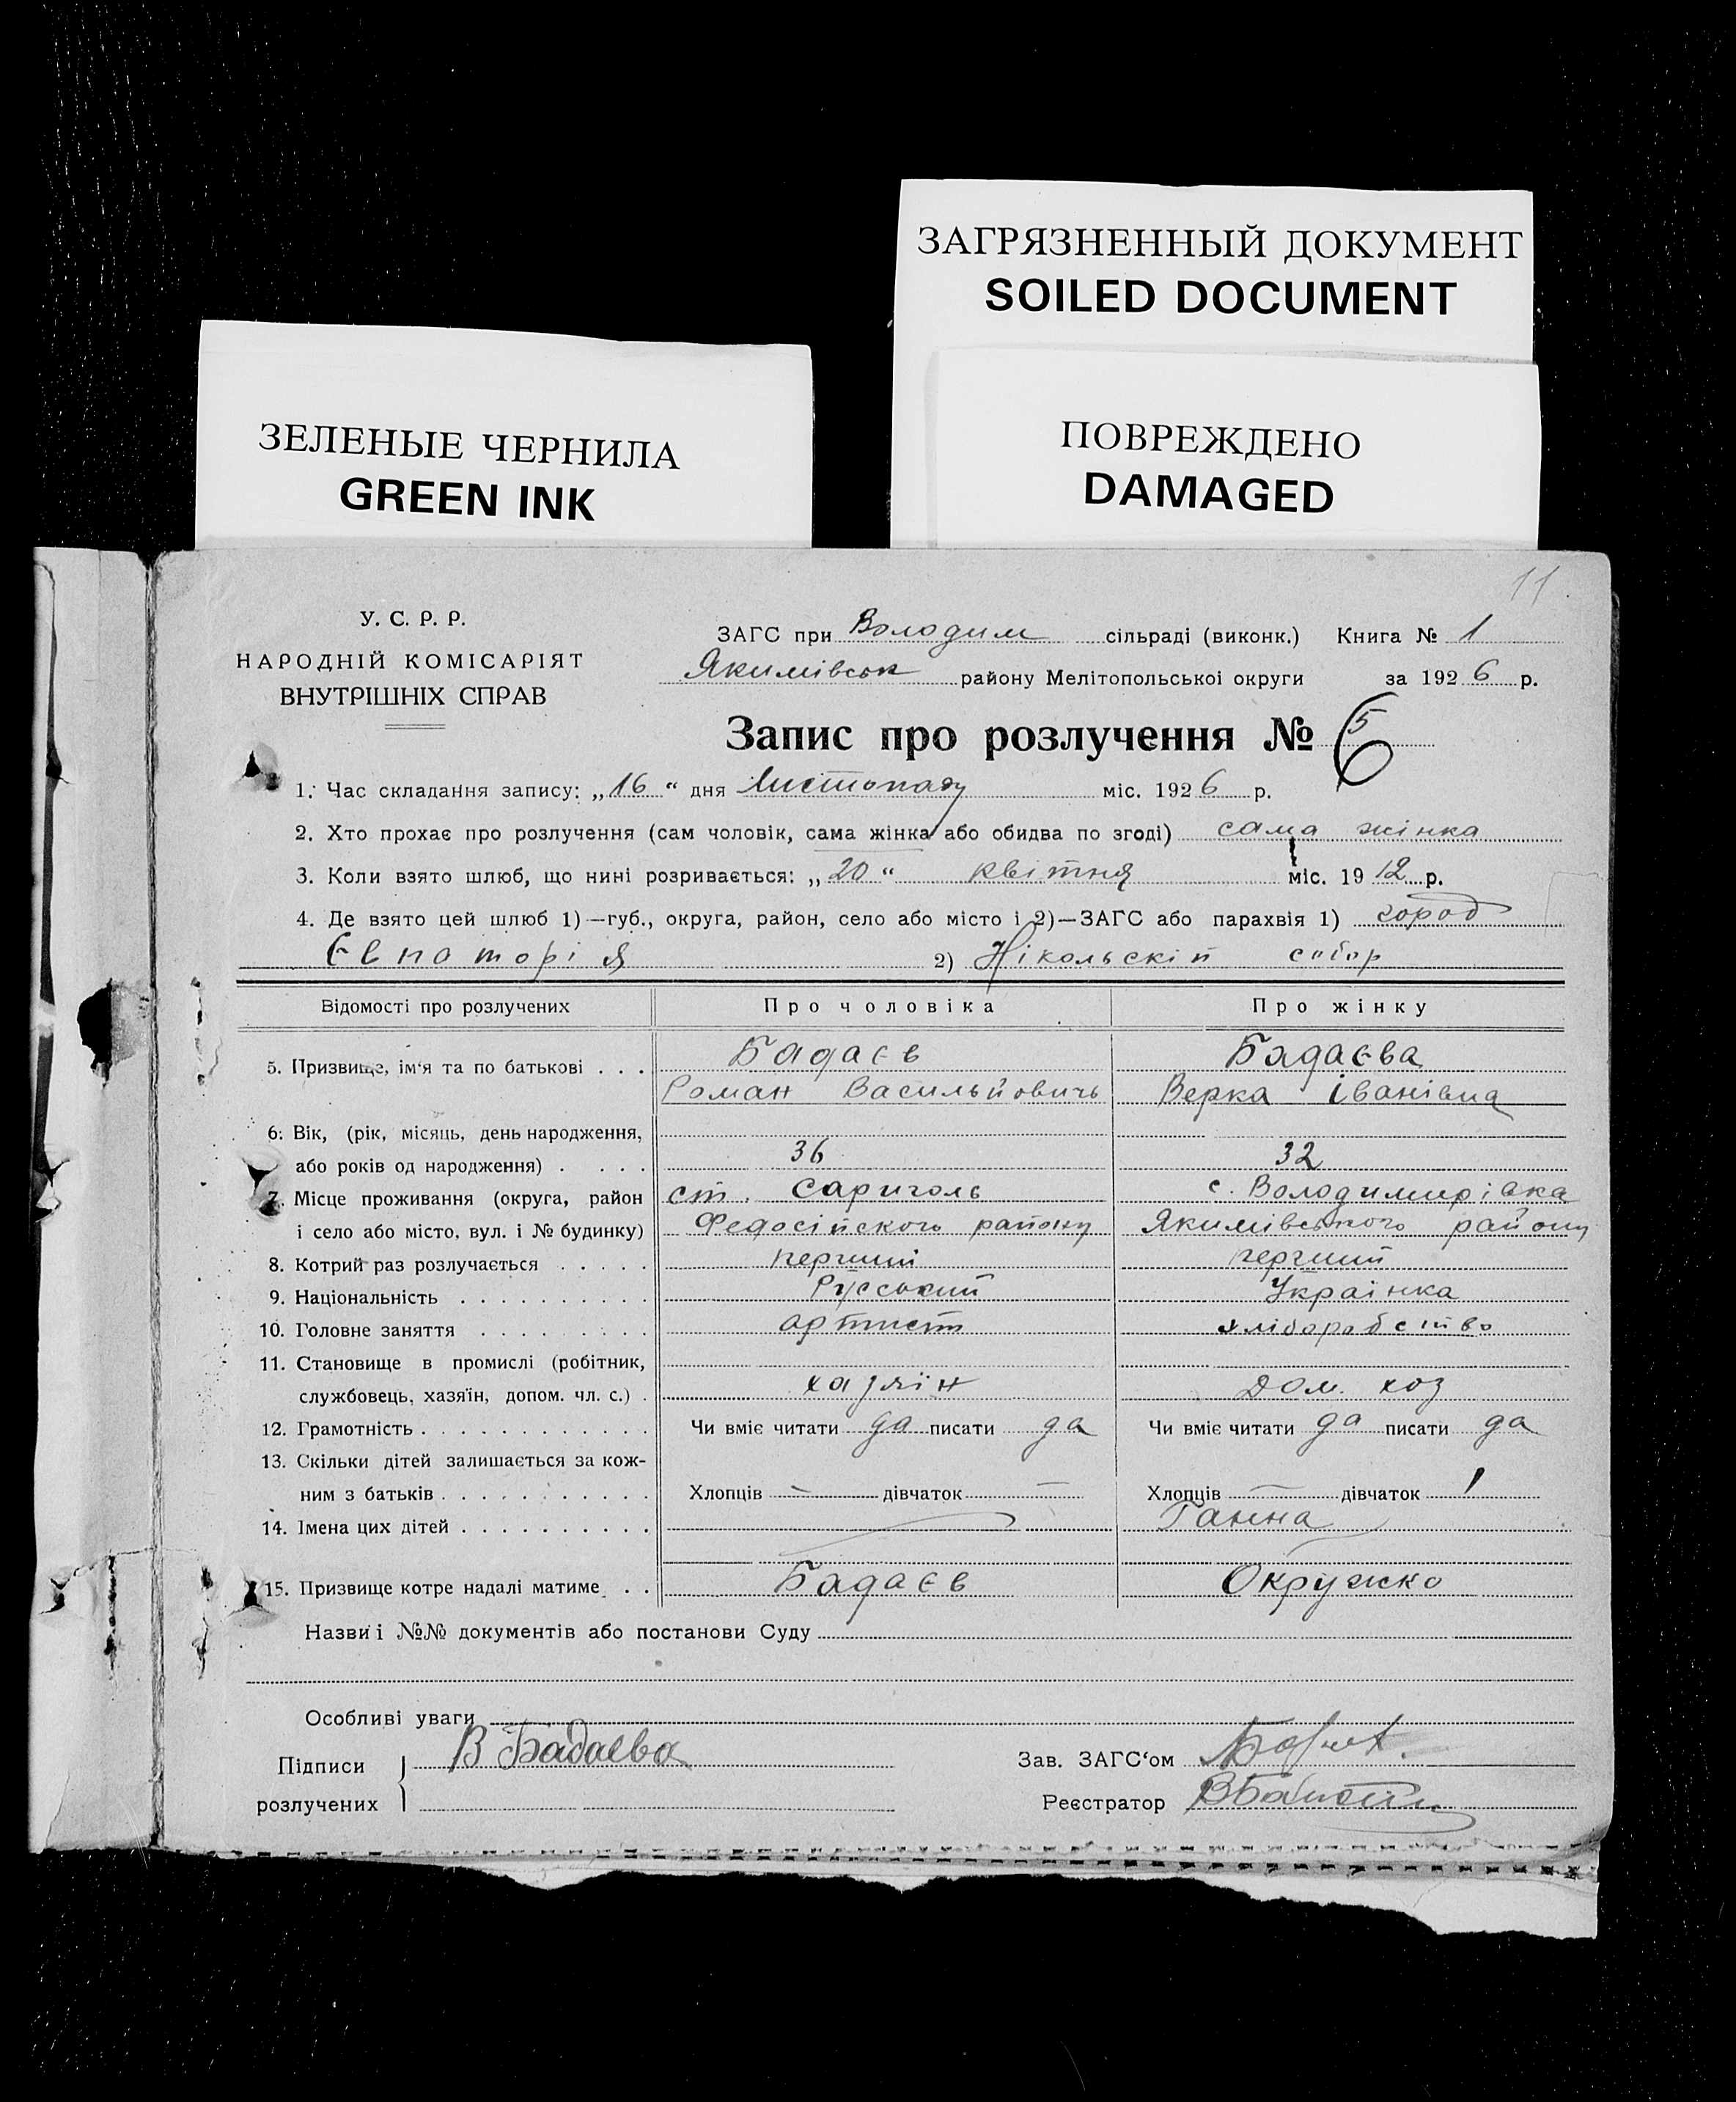 ЗАГРЯЗНЕННЫЙ ДОКУМЕНТ
SOILED DOCUMENT
ЗЕЛЕНЫЕ ЧЕРНИЛА
GREEN INK
ПОВРЕЖДЕНО
DAMAGED
11.
У. С. Р. Р.
НАРОДНІЙ КОМІСАРІЯТ
ВНУТРІШНІХ СПРАВ
ЗАГС при Володим сільраді (виконк.) Книга № 1
Якимівськ району Мелітопольської округи за 1926 р.
Запис про розлучення № 5 6
1. Час складання запису: „16“ дня Листопаду міс. 1926 р.
2. Хто прохає про розлучення (сам чоловік, сама жінка або обидва по згоді) сама жінка
3. Коли взято шлюб, що нині розривається: „20“ квітня міс. 1912 р.
4. Де взято цей шлюб 1)—губ., округа, район, село або місто і 2)—ЗАГС або парахвія 1) город
Євпаторія 2) Нікольскій собор
Відомості про розлучених Про чоловіка Про жінку
5. Призвище, ім‘я та по батькові . . . Бадаєв Бадаєва
Роман Васильйовичь Верка Іванівна
6. Вік, (рік, місяць, день народження,
або років од народження) . . . . 36 32
7. Місце проживання (округа, район ст. Сариголь с. Володимирівка
і село або місто, вул. і № будинку) Федосійского району Якимівського району
8. Котрий раз розлучається . . . . . перший перший
9. Національність . . . . . . . . . . Руський Українка
10. Головне заняття . . . . . . . . . артист хліборобство
11. Становище в промислі (робітник,
службовець, хазяїн, допом. чл. с.) . хазяїн дом. хоз
12. Грамотність . . . . . . . . . . . . Чи вміє читати да писати да Чи вміє читати да писати да
13. Скільки дітей залишається за кож-
ним з батьків . . . . . . . . . . . Хлопців — дівчаток — Хлопців — дівчаток 1
14. Імена цих дітей . . . . . . . . . . Ганна
15. Призвище котре надалі матиме . . Бадаєв Окружко
Назви і №№ документів або постанови Суду
Особливі уваги
Підписи В Бадаева Зав. ЗАГС‘ом
розлучених Реєстратор